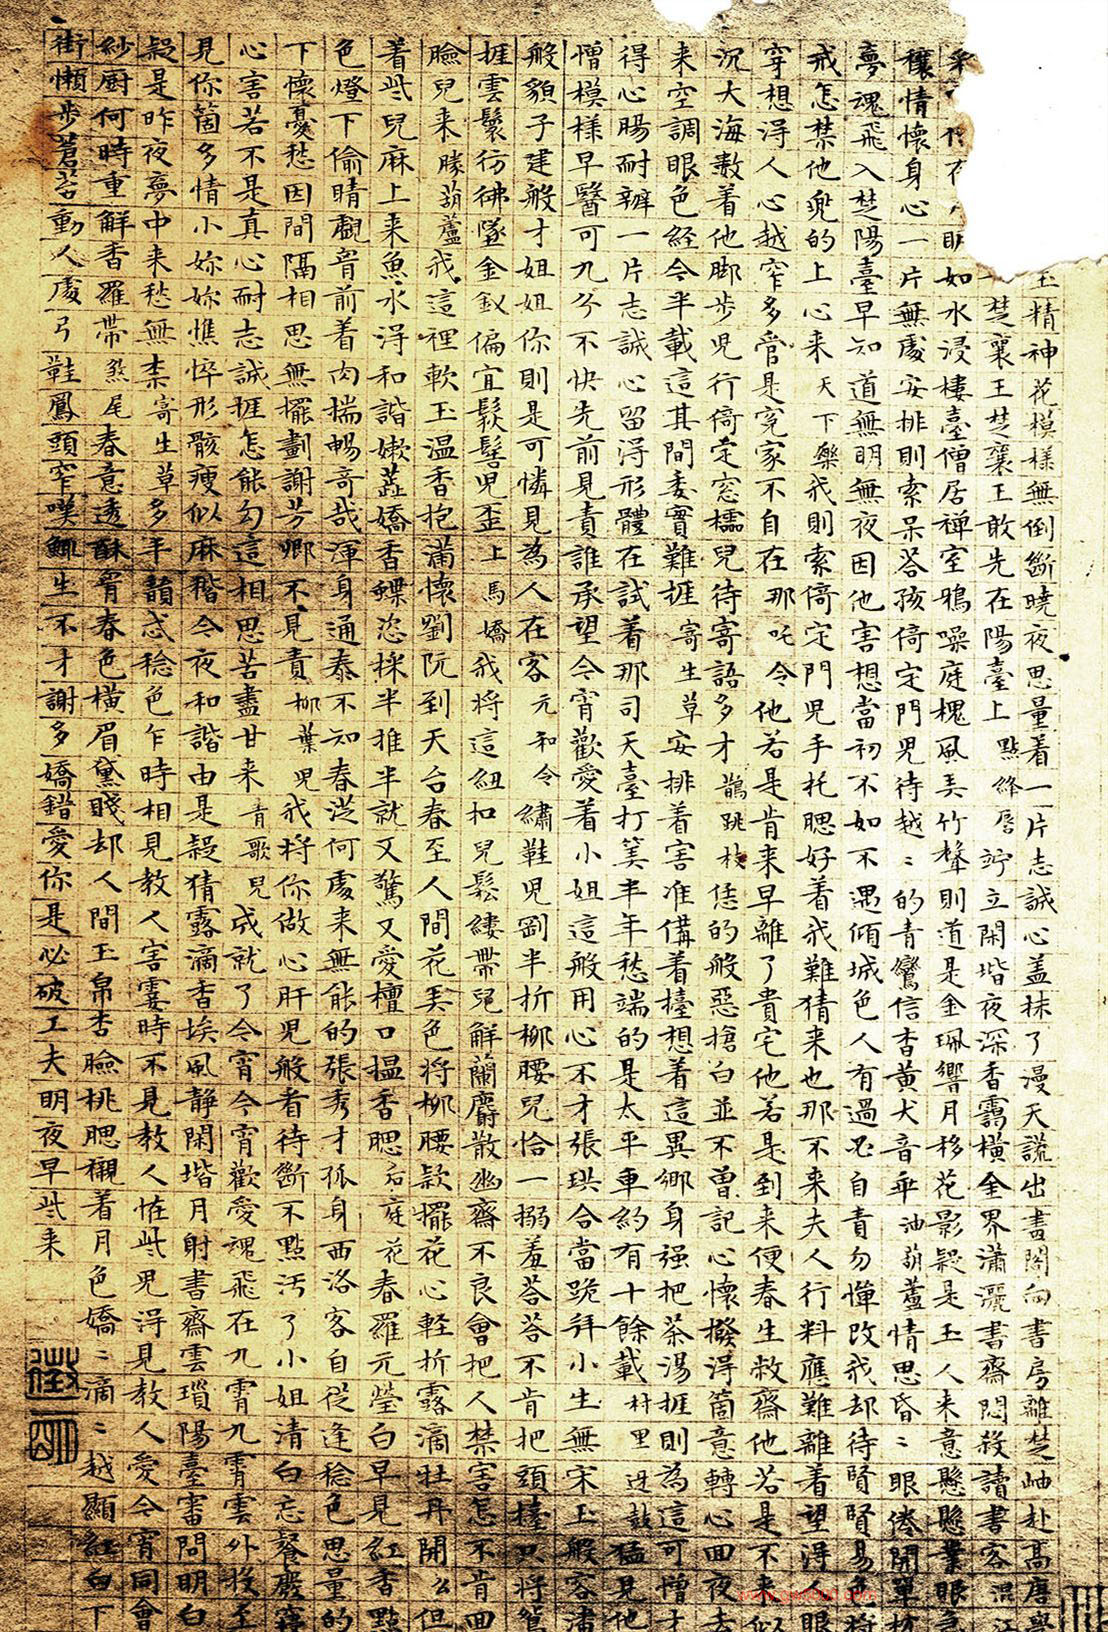 玉精神花模樣無倒斷曉夜思量着一片志誠心盖抹了漫天謊出畫閣向書房離楚岫赴高唐學
楚襄王楚襄王敢先在陽臺上點絳唇竚立閑堦夜深香靄橫金界瀟灑書齋悶殺讀書客混江
如水浸樓臺僧居禅室鴉噪庭槐風弄竹聲則道是金珮響月移花影疑是玉人来意懸懸業眼急
穰情懷身心一片無處安排則索呆荅孩倚定門兒待越〻的青鸞信杳黄犬音乖油葫蘆情思昏〻眼倦開單枕
夢魂飛入楚陽臺早知道無明無夜因他害想當初不如不遇傾城色人有過必自責勿憚改我却待賢賢易色將
戒怎禁他兜的上心来天下樂我則索倚定門兒手托腮好着我難猜来也那不来夫人行料應難離着望得眼
穿想得人心越窄多管是冤家不自在那吒令他若是肯来早離了貴宅他若是到来便春生敝齋他若是不来似
沉大海數着他脚步兒行倚定窓櫺兒待寄語多才鵲踏枝恁的般惡搶白並不曾記心懷撥得箇意轉心回夜去
来空調眼色經今半載這其間委實難捱寄生草安排着害准備着擡想着這異鄉身强把茶湯捱則為這可憎才
得心腸耐辧一片志誠心留得形體在試着那司天臺打筭半年愁端的是太平車約有十餘載村里迓鼓猛見他
憎模樣早醫可九分不快先前見責誰承望今宵歡愛着小姐這般用心不才張珙合當跪拜小生無宋玉般容潘
般貌子建般才姐姐你則是可憐見為人在客元和令繡鞋兒剛半折柳腰兒恰一搦羞荅荅不肯把頭擡只將鴛
捱雲鬟彷彿墜金釵偏宜鬏髻兒歪上馬嬌我將這紐扣兒鬆縷帶兒解蘭麝散幽齋不良會把人禁害怎不肯回
臉兒来勝葫蘆我這裡軟玉温香抱滿懷劉阮到天台春至人間花弄色將柳腰款擺花心輕折露滴牡丹開么但
着些兒麻上来魚水得和諧嫩蕋嬌香蝶恣採半推半就又驚又愛檀口揾香腮后庭花春羅元瑩白早見紅香點
色燈下偷睛覷胷前着肉揣暢奇哉渾身通泰不知春從何處来無能的張秀才孤身西洛客自從逢稔色思量的
下懷憂愁因間隔相思無擺劃謝芳卿不見責柳葉兒我將你做心肝兒般看待斷不點汚了小姐清白忘餐廢寝
心害若不是真心耐志誠捱怎能勾這相思苦盡甘来青歌兒成就了今宵今宵歡愛魂飛在九霄九霄雲外投至
見你箇多情小妳妳憔悴形骸瘦似麻稭今夜和諧由是疑猜露滴香埃風静閑堦月射書齋雲瑣陽臺審問明白
疑是昨夜夢中来愁無柰寄生草多丰韻忒稔色乍時相見教人害霎時不見教人恠些兒得見教人愛今宵同會
紗厨何時重解香羅帶煞尾春意透酥胷春色橫眉黛賤却人間玉帛杏臉桃腮襯着月色嬌〻滴〻越顯紅白下
街懶步蒼苔動人處弓鞋鳳頭窄嘆鯫生不才謝多嬌錯愛你是必破工夫明夜早些来